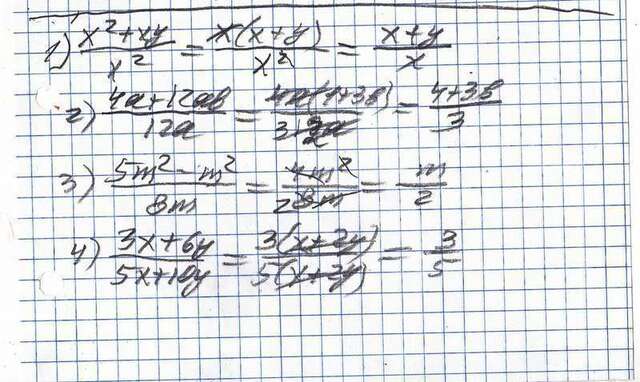 1) (x²+xy)/x² = x(x+y)/x² = (x+y)/x
2) (4a+12ab)/12a = 4a(1+3b)/12a = (4+3b)/3
3) (5m²-m²)/8m = 4m²/8m = m/2
4) (3x+6y)/(5x+10y) = 3(x+2y)/5(x+2y) = 3/5